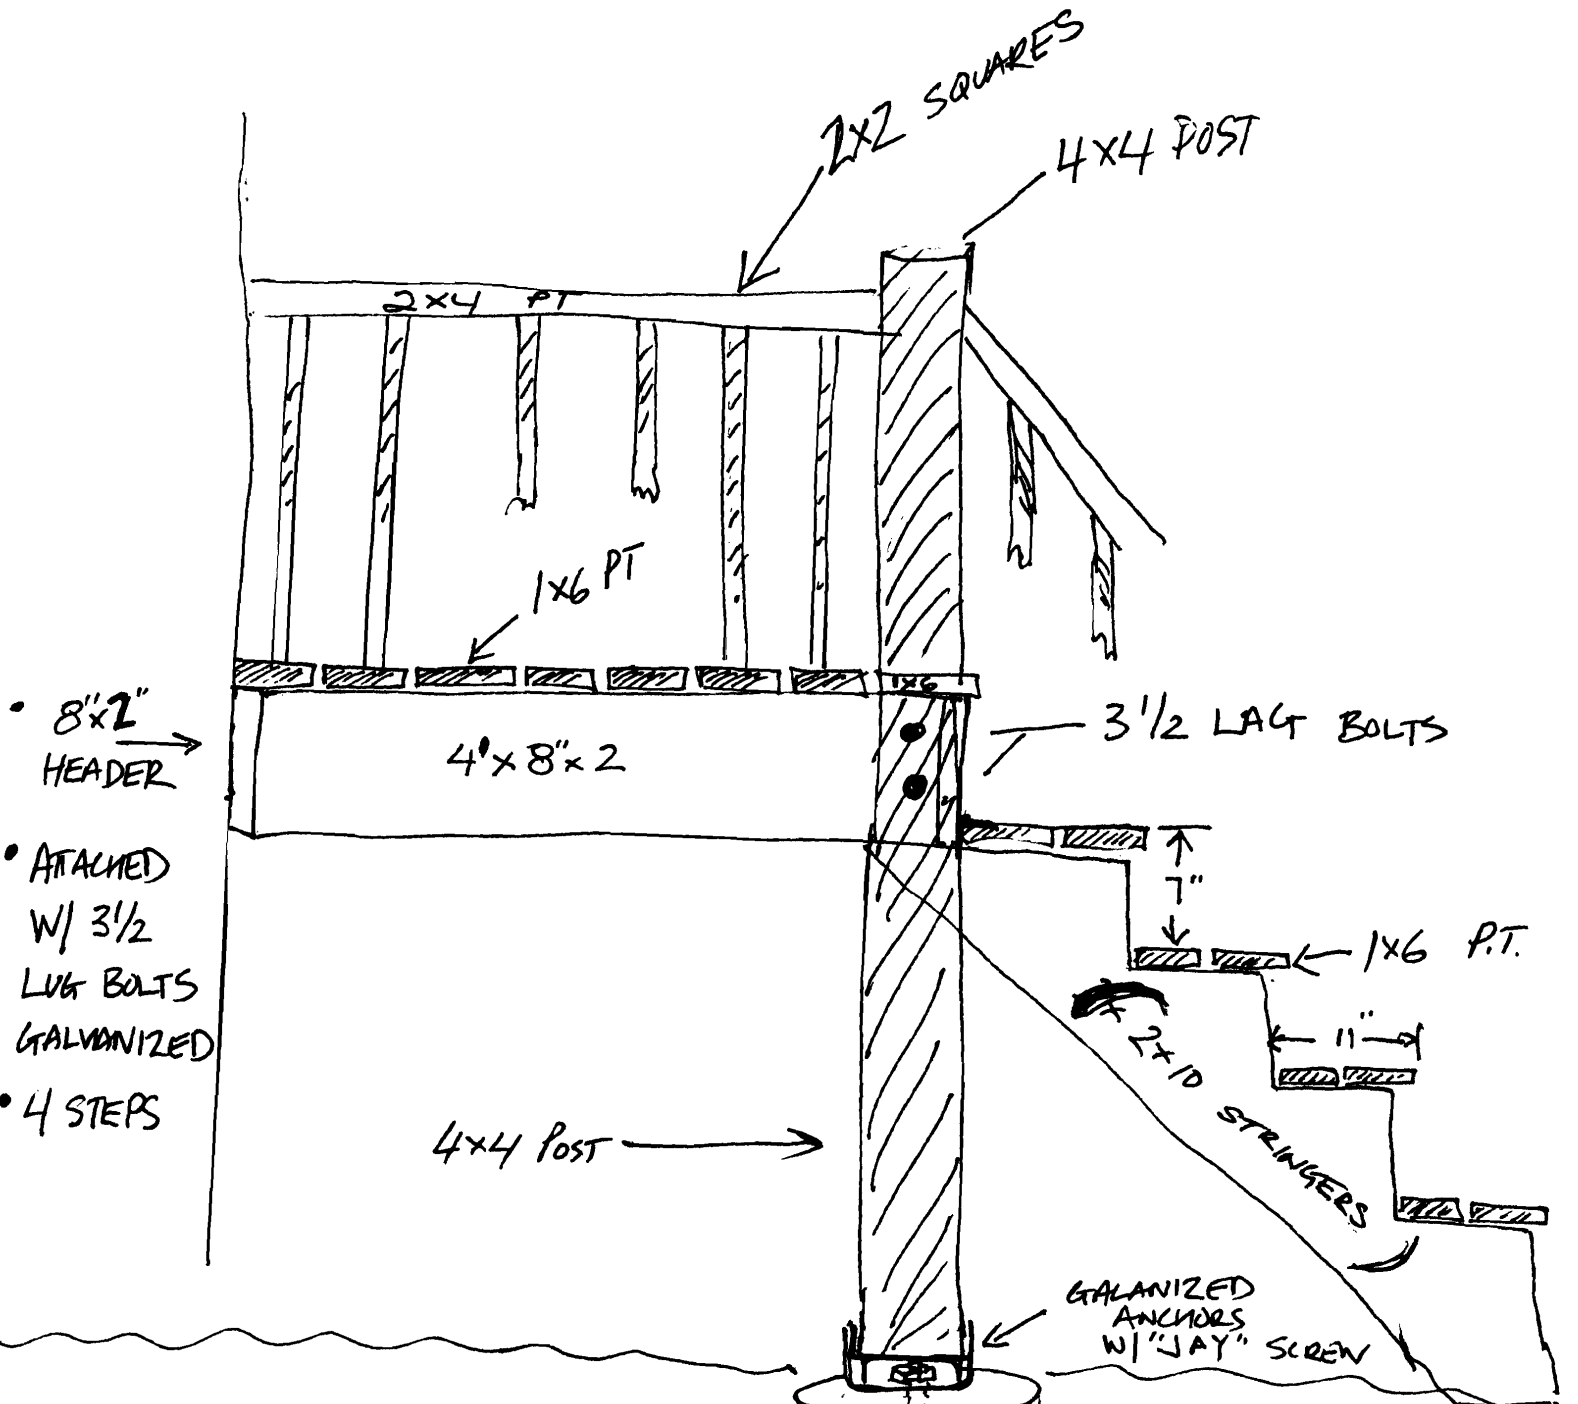 2x2 SQUARES
4x4 POST
2x4 PT
1x6 PT
1x6
• 8"x2"
HEADER
4'x8"x2
3 1/2 LAG BOLTS
• ATTACHED
W/ 3 1/2
LUG BOLTS
GALVANIZED
• 4 STEPS
7"
1x6 P.T.
11"
2x10 STRINGERS
4x4 POST
GALANIZED
ANCHORS
W/ "JAY" SCREW